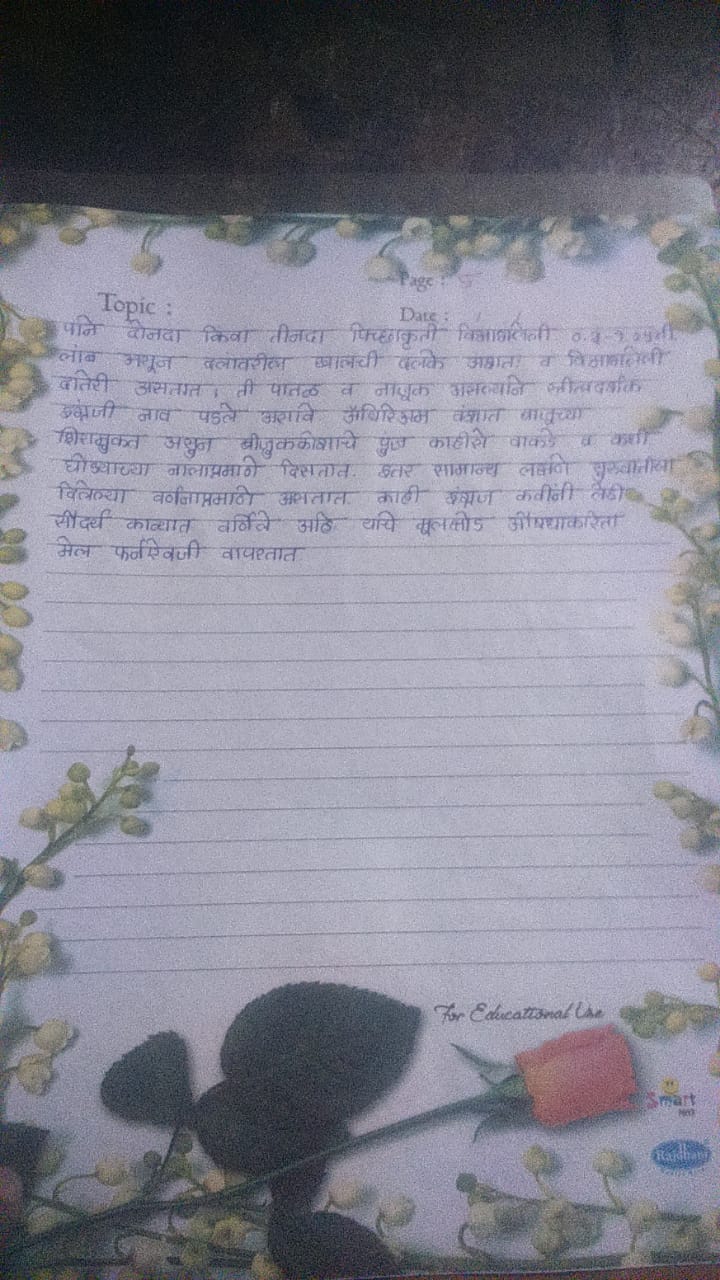 Page : 5
Topic :
Date :
पाने दोनदा किंवा तीनदा पिच्छाकृती विभागलेली ०.५-१.०
लांब असून दलावरील खालची दलके व विभागलेली
दातेरी असतात. ती पातळ व नाजूक असल्याने स्त्रीत्वदर्शक
इंग्रजी नाव पडले असावे ॲथिरिअम वंशात बाजूच्या
शिरा मुक्त असुन बीजुककोशाचे पुंज काहीसे वाकडे व कधी
घोड्याच्या नालाप्रमाणे दिसतात. इतर सामान्य लक्षणे सुरुवातीला
दिलेल्या वर्णनाप्रमाणे असतात. काही इंग्रज कवींनी लेडी
सौंदर्य काव्यात वर्णिले आहे याचे मूलक्षोड औषधाकरिता
मेल फर्नऐवजी वापरतात
For Educational Use
Smart
Rajdhani